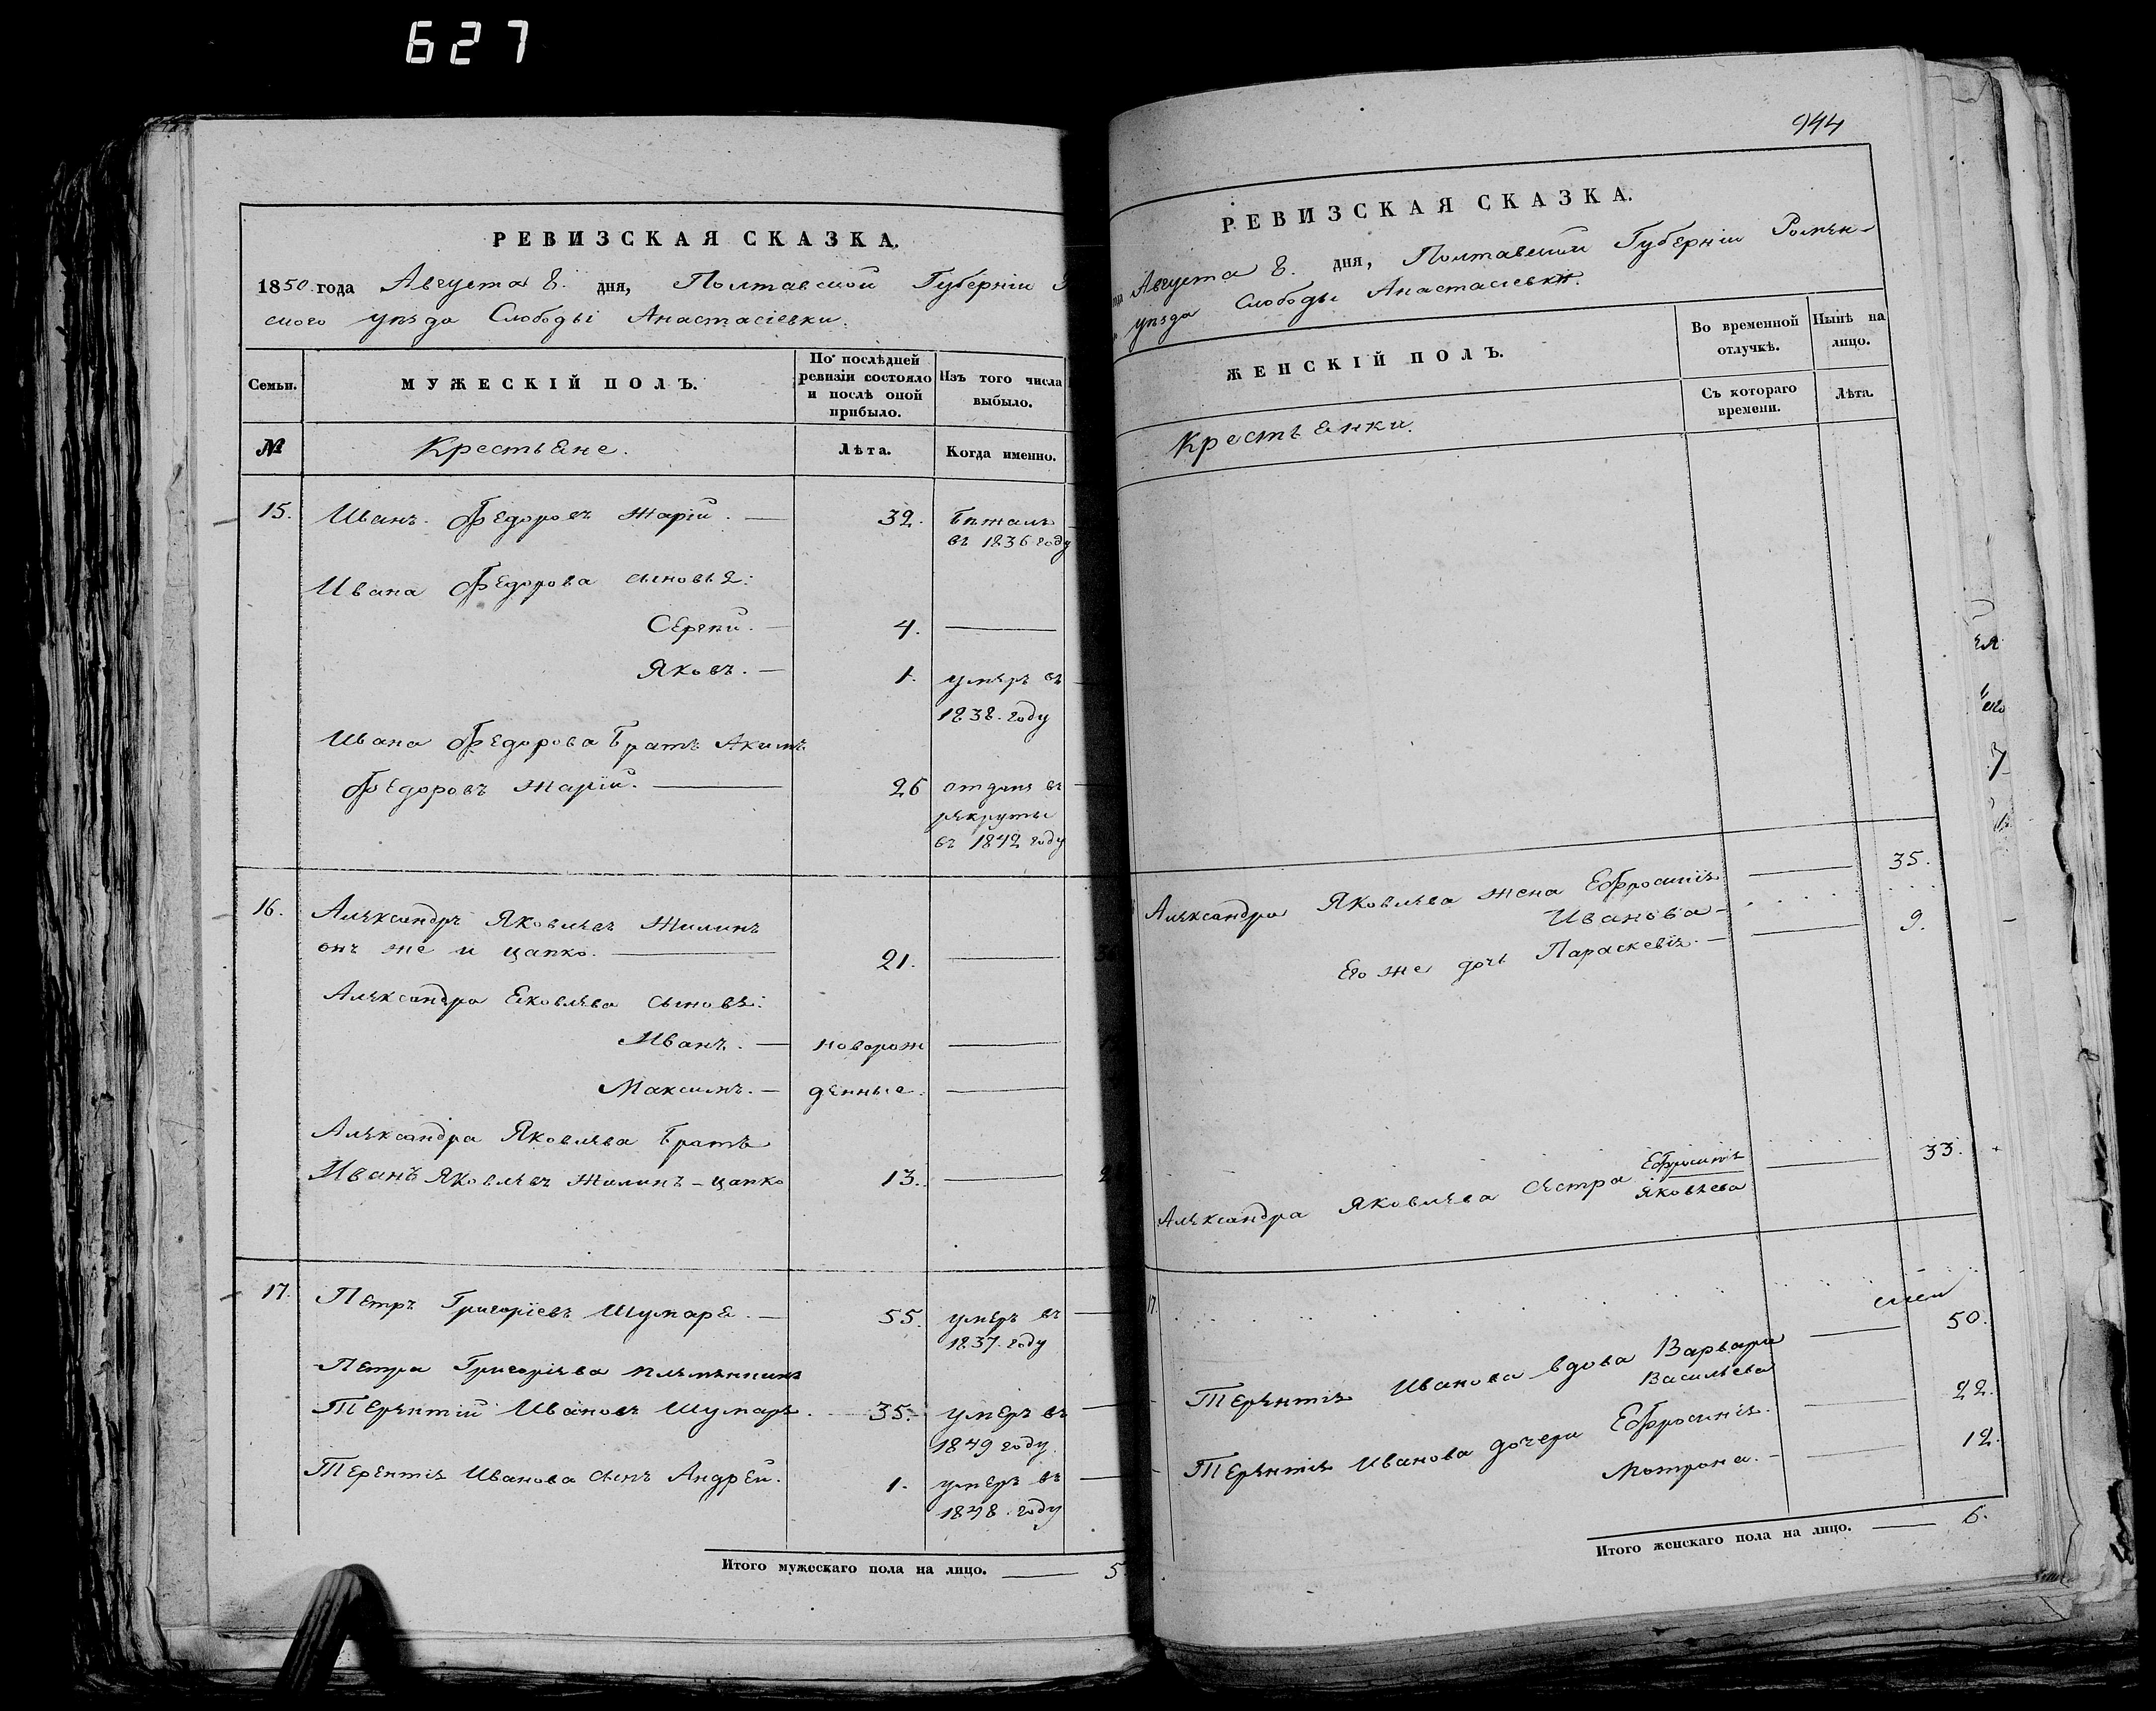 627
РЕВИЗСКАЯ СКАЗКА.
1850 года Августа 8. дня, Полтавской Губерніи
ского уѣзда Слободы Анастасіевки.
Семьи.
МУЖЕСКІЙ ПОЛЪ.
По послѣдней ревизіи состояло и послѣ оной прибыло.
Изъ того числа выбыло.
№
Крестьяне.
Лѣта.
Когда именно.
15. Иванъ Федоровъ Жарій. — 32. бѣжалъ
въ 1836 году
Ивана Федорова сыновья:
Сергѣй. — 4. —
Яковъ. — 1. умеръ въ
1838. году
Ивана Федорова братъ Акимъ
Федоровъ Жарій. — 26 отданъ въ
рекруты
въ 1842 году
16. Александръ Яковлевъ Жилинъ
онъ же и цапко. — 21. —
Александра Яковлева сыновья:
Иванъ. — новорож —
Максимъ. — денные. —
Александра Яковлева братъ
Иванъ Яковлевъ Жилинъ - цапко 13. —
17. Петръ Григоріевъ Шумаря. — 55. умеръ въ
1837. году
Петра Григоріева племянникъ
Терентій Ивановъ Шумаря. 35. умеръ въ
1849 году.
Терентія Иванова сынъ Андрей. 1. умеръ въ
1848. году
Итого мужескаго пола на лицо. — 5
944
РЕВИЗСКАЯ СКАЗКА.
Августа 8. дня, Полтавской Губерніи Ромен-
уѣзда Слободы Анастасіевки.
ЖЕНСКІЙ ПОЛЪ.
Во временной отлучкѣ.
Нынѣ на лицо.
Съ котораго времени.
Лѣта.
Крестьянки.
Александра Яковлева жена Ефросинія — 35.
Иванова —
Его же дочь Параскевія. — 9.
Александра Яковлева сестра Ефросинія — 33.
Яковлева
17.
Терентія Иванова вдова Варвара — 50.
Васильева
Терентія Иванова дочери Ефросинія. — 22.
Мотрона. — 12.
Итого женскаго пола на лицо. — 6.